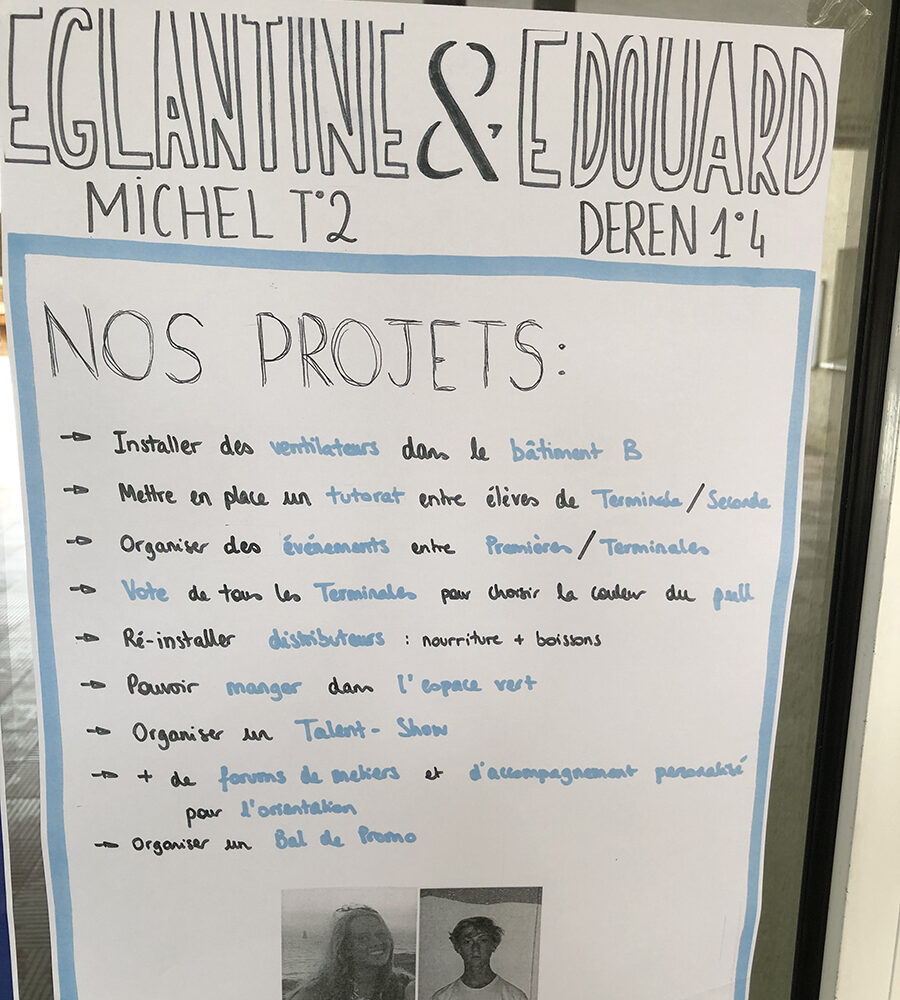 EGLANTINE & EDOUARD
MICHEL T°2 DEREN 1°4
NOS PROJETS :
→ Installer des ventilateurs dans le bâtiment B
→ Mettre en place un tutorat entre élèves de Terminale / Seconde
→ Organiser des événements entre Premières / Terminales
→ Vote de tous les Terminales pour choisir la couleur du pull
→ Ré-installer distributeurs : nourriture + boissons
→ Pouvoir manger dans l'espace vert
→ Organiser un Talent-Show
→ + de forums de metiers et d'accompagnement personalisé
pour l'orientation
→ Organiser un Bal de Promo